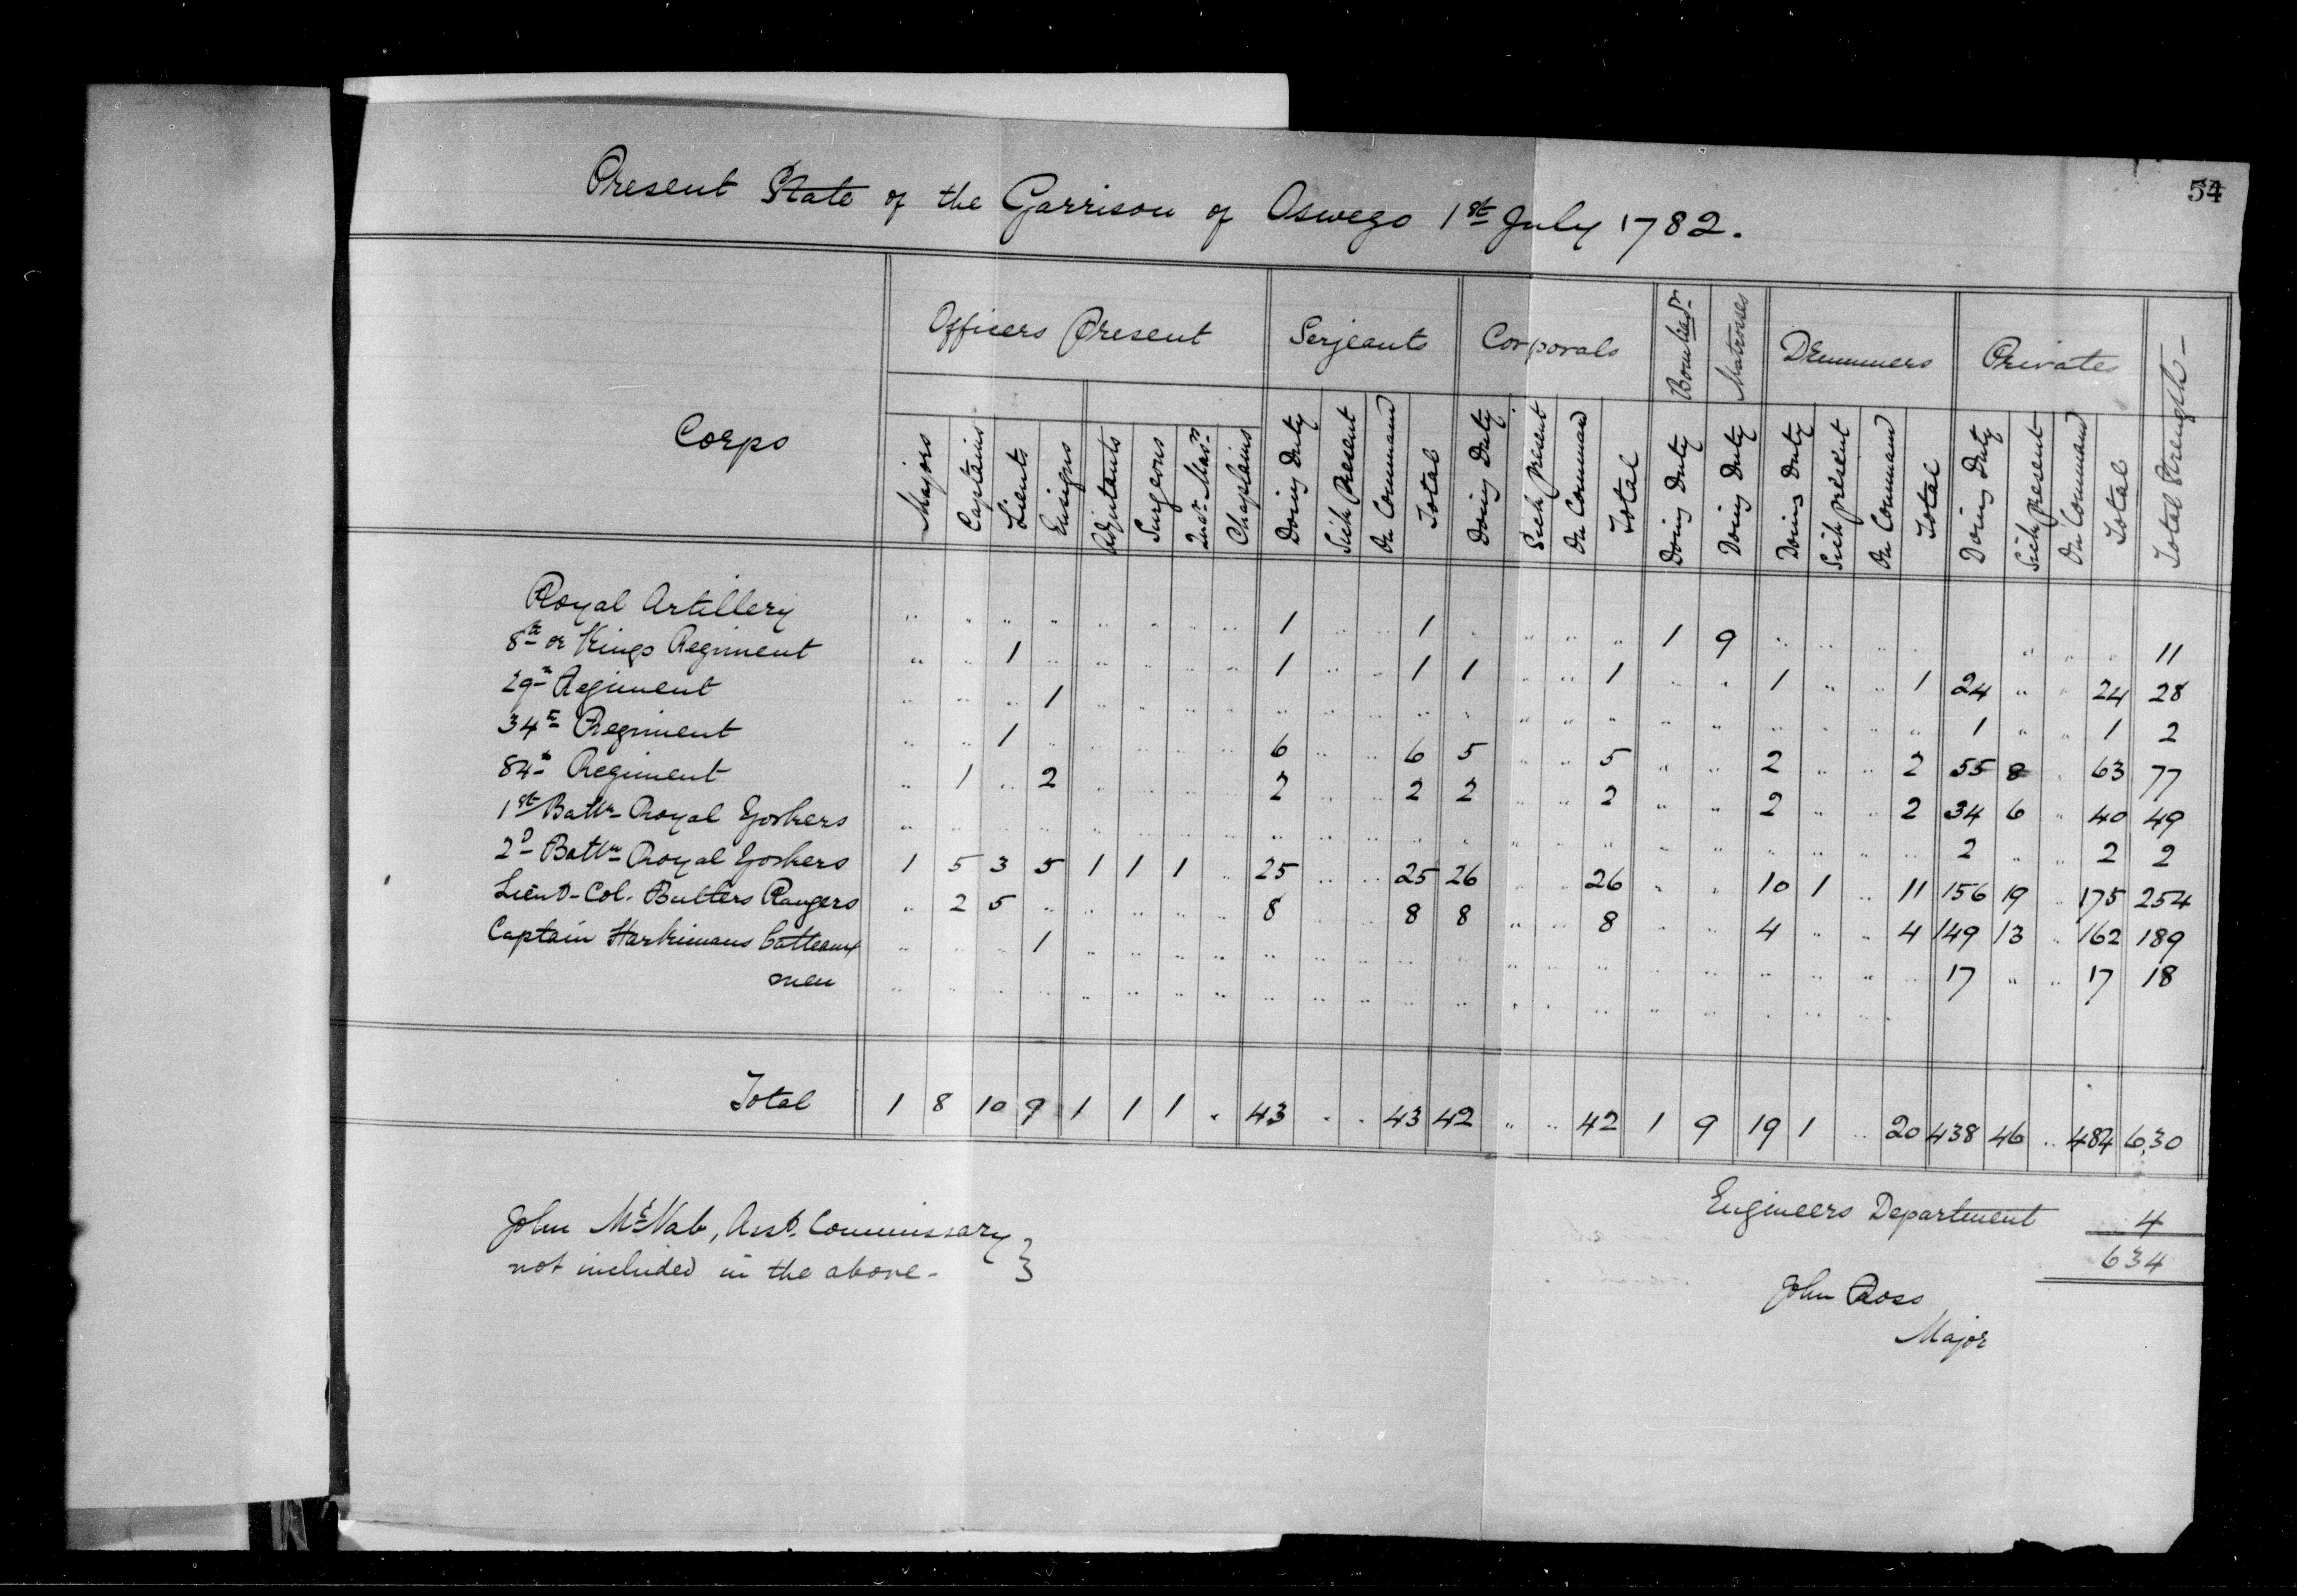 54
Present State of the Garrison of Oswego 1st July 1782.
Corps | Officers Present | Serjeants | Corporals | Bombardr | Matrosses | Drummers | Privates | Total Strength
Majors | Captains | Lieuts | Ensigns | Adjutants | Surgeons | Quar. Masrs | Chaplains | Doing Duty | Sick Present | On Command | Total | Doing Duty | Sick present | On Command | Total | Doing Duty | Doing Duty | Doing Duty | Sick present | On Command | Total | Doing Duty | Sick present | On Command | Total
Royal Artillery | " | " | " | " | " | " | " | " | 1 | " | " | 1 | " | " | " | " | 1 | 9 | " | " | " | " | | " | " | " | 11
8th or Kings Regiment | " | " | 1 | " | " | " | " | " | 1 | " | " | 1 | 1 | " | " | 1 | " | " | 1 | " | " | 1 | 24 | " | " | 24 | 28
29th Regiment | " | " | " | 1 | " | " | " | " | " | " | " | " | " | " | " | " | " | " | " | " | " | " | 1 | " | " | 1 | 2
34th Regiment | " | " | 1 | " | " | " | " | " | 6 | " | " | 6 | 5 | " | " | 5 | " | " | 2 | " | " | 2 | 55 | 8 | " | 63 | 77
84th Regiment | " | 1 | " | 2 | " | " | " | " | 2 | " | " | 2 | 2 | " | " | 2 | " | " | 2 | " | " | 2 | 34 | 6 | " | 40 | 49
1st Battn Royal Yorkers | " | " | " | " | " | " | " | " | " | " | " | " | " | " | " | " | " | " | " | " | " | " | 2 | " | " | 2 | 2
2d Battn Royal Yorkers | 1 | 5 | 3 | 5 | 1 | 1 | 1 | " | 25 | " | " | 25 | 26 | " | " | 26 | " | " | 10 | 1 | " | 11 | 156 | 19 | " | 175 | 254
Lieut-Col. Butlers Rangers | " | 2 | 5 | " | " | " | " | " | 8 | " | " | 8 | 8 | " | " | 8 | " | " | 4 | " | " | 4 | 149 | 13 | " | 162 | 189
Captain Harkimans batteaux | " | " | " | 1 | " | " | " | " | " | " | " | " | " | " | " | " | " | " | " | " | " | " | 17 | " | " | 17 | 18
men | " | " | " | " | " | " | " | " | " | " | " | " | " | " | " | " | " | " | " | " | " | "
Total | 1 | 8 | 10 | 9 | 1 | 1 | 1 | " | 43 | " | " | 43 | 42 | " | " | 42 | 1 | 9 | 19 | 1 | " | 20 | 438 | 46 | " | 484 | 630
Engineers Department 4
634
John McNab, Asst. Commissary
not included in the above. }
John Ross
Major